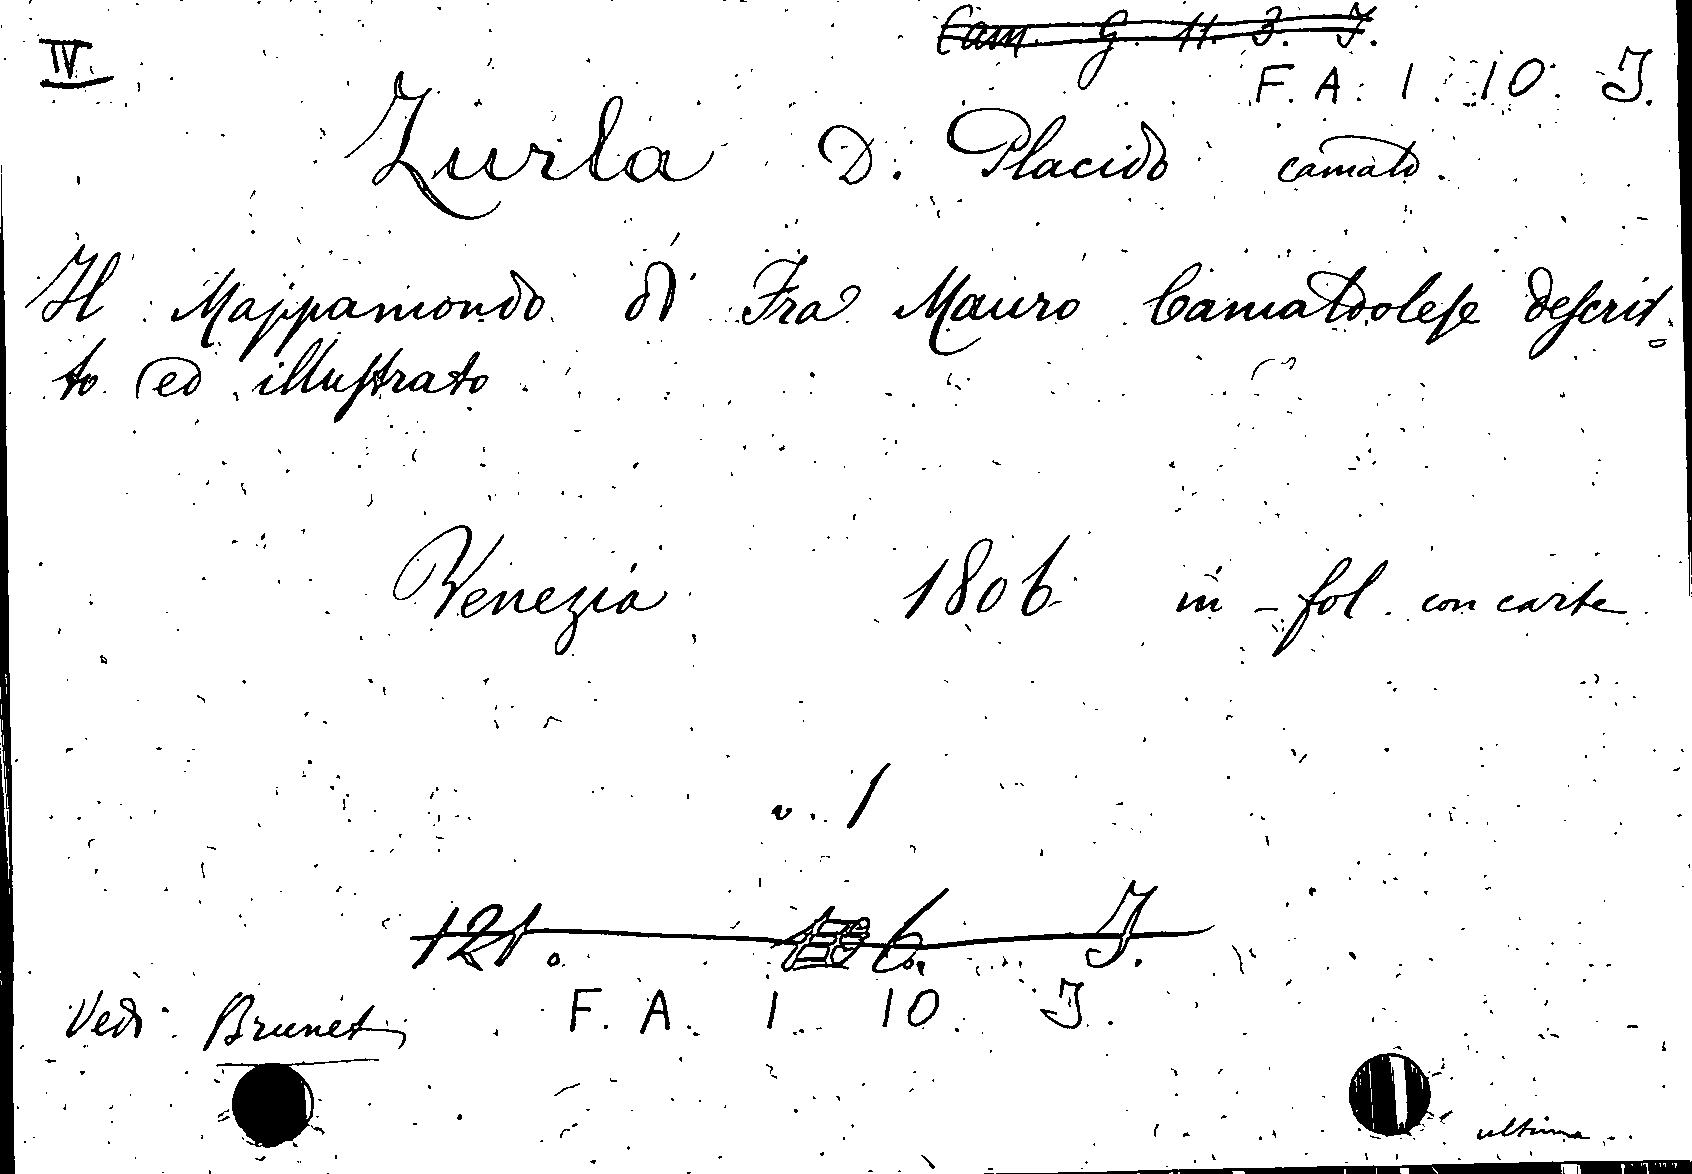 IV.
Cam. G. 11. 3. I.
F. A. 1. 10. I.
Zurla D. Placido camald.
Il Mappamondo di Fra Mauro Camaldolese descrit-
to ed illustrato
Venezia 1806 in-fol. con carte
v. 1
121. 6. I.
F. A. 1. 10. I.
Vedi Brunet
ultima